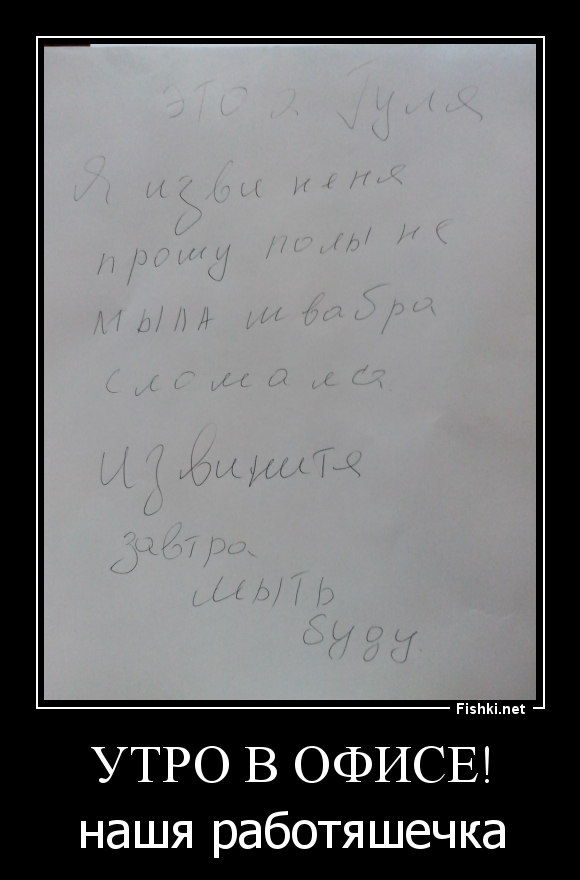 это я Гуля
Я изви неня
прошу полы не
мыла швабра
сломалса
Извинитя
завтра
мыть
буду.
Fishki.net
УТРО В ОФИСЕ!
нашя работяшечка